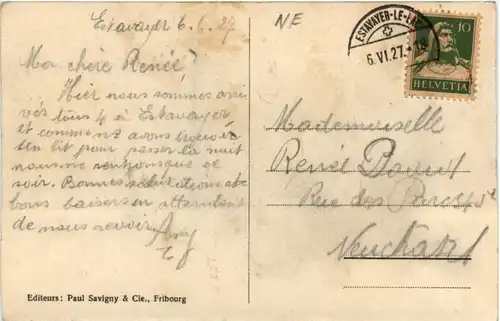 Estavayer 6.6. 27
NE
ESTAVAYER-LE-LAC
6.VI.27.
10
HELVETIA
Ma chère Renée!
Hier nous sommes arri
vés tous 4 à Estavayer
et comme nz avons trouvé
un lit pour passer la nuit
nous ne rentrons que ce
soir. Bonnes salutations et
bons baisers en attendant
de nous revoir
Mademoiselle
Renée
Rue des Parcs
Neuchâtel
Editeurs: Paul Savigny & Cie., Fribourg